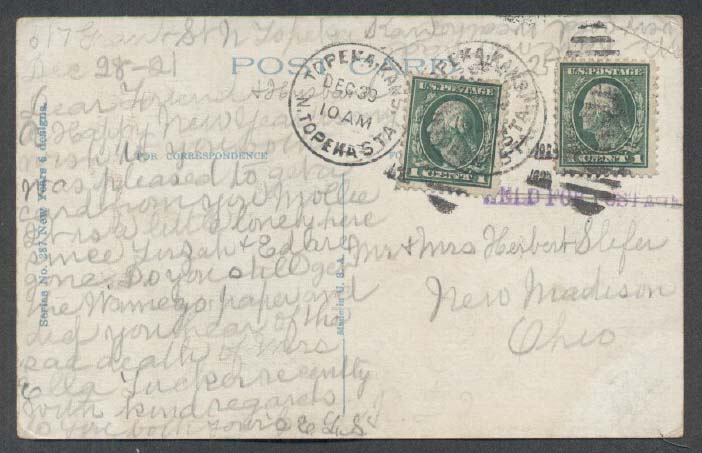 617 Grant St N Topeka Kan
Dec 28-21
POST CARD
Dear Friend & Husband
A Happy New Year
wish to you both
FOR CORRESPONDENCE
Was pleased to get a
card from you Mollie
It is a little lonely here
since Tirzah & Ed are
gone. Do you still get
the Wamego paper and
did you hear of the
sad death of Mrs
Ella Tucker recently
With kind regards
to you both yours E L S
Series No. 287, New Years 6 designs.
Made in U. S. A.
N. TOPEKA, KANS.
DEC 30
10 AM
N. TOPEKA STA.
TOPEKA, KANS.
STA.
U.S. POSTAGE
1 CENT 1
U.S. POSTAGE
1 CENT 1
HELD FOR POSTAGE
Mr & Mrs Herbert Slifer
New Madison
Ohio